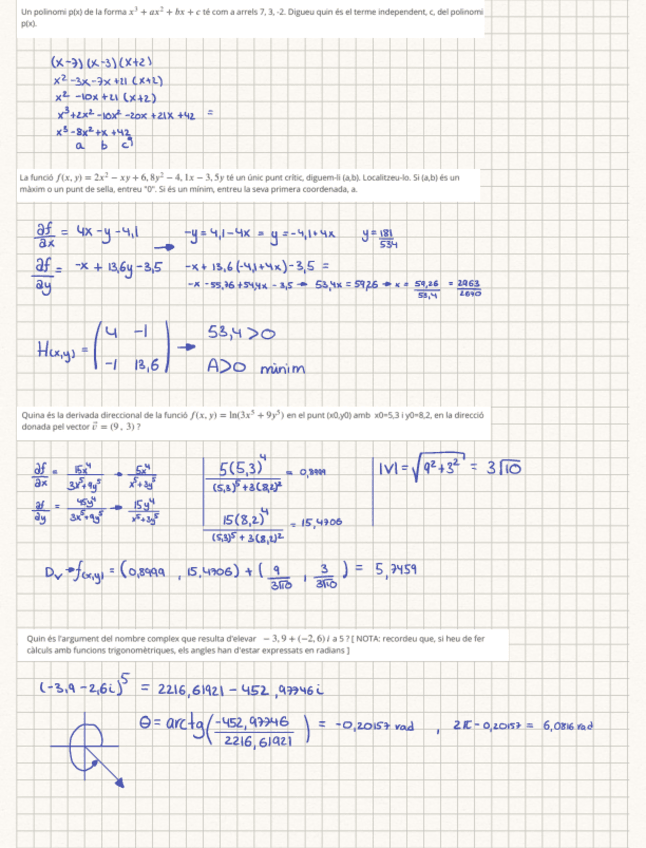 Un polinomi p(x) de la forma x³ + ax² + bx + c té com a arrels 7, 3, -2. Digueu quin és el terme independent, c, del polinomi
p(x).
(x-7)(x-3)(x+2)
x²-3x-7x+21 (x+2)
x² -10x+21 (x+2)
x³+2x²-10x²-20x+21x+42 =
x³-8x²+x+42
a b c
La funció f(x, y) = 2x² − xy + 6, 8y² − 4, 1x − 3, 5y té un únic punt crític, diguem-li (a,b). Localitzeu-lo. Si (a,b) és un
màxim o un punt de sella, entreu "0". Si és un mínim, entreu la seva primera coordenada, a.
∂f/∂x = 4x-y-4,1 → -y=4,1-4x = y=-4,1+4x y=181/534
∂f/∂y = -x+13,6y-3,5 -x+13,6(-4,1+4x)-3,5 =
-x-55,76+54,4x-3,5 → 53,4x=59,26 → x=59,26/53,4 = 2963/2670
H(x,y) = (4 -1 / -1 13,6) → 53,4>0
A>0 mínim
Quina és la derivada direccional de la funció f(x, y) = ln(3x⁵ + 9y⁵) en el punt (x0,y0) amb x0=5,3 i y0=8,2, en la direcció
donada pel vector v⃗ = (9, 3) ?
∂f/∂x = 15x⁴/3x⁵+9y⁵ → 5x⁴/x⁵+3y⁵ 5(5,3)⁴/(5,3)⁵+3(8,2)² = 0,8999 |V|=√9²+3² = 3√10
∂f/∂y = 45y⁴/3x⁵+9y⁵ → 15y⁴/x⁵+3y⁵ 15(8,2)⁴/(5,3)⁵+3(8,2)² = 15,4706
Dv→f(x,y) = (0,8999 , 15,4706)+(9/3√10 , 3/3√10) = 5,7459
Quin és l'argument del nombre complex que resulta d'elevar − 3, 9 + (−2, 6) i a 5 ? [ NOTA: recordeu que, si heu de fer
càlculs amb funcions trigonomètriques, els angles han d'estar expressats en radians ]
(-3,9-2,6i)⁵ = 2216,61921-452,97746i
θ=arctg(-452,97746/2216,61921) = -0,20157 rad , 2π-0,20157= 6,0816 rad